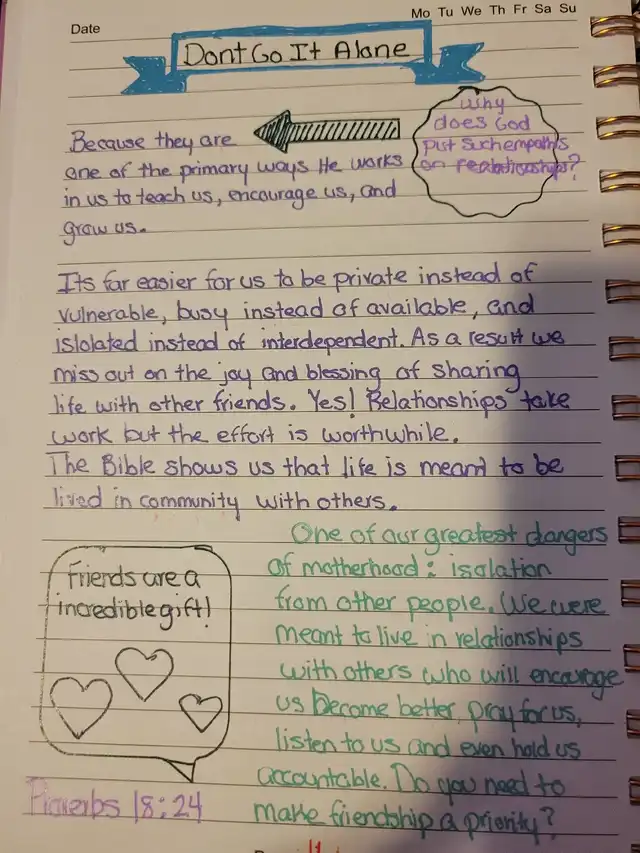 Mo Tu We Th Fr Sa Su
Date
Dont Go It Alone
Why
does God
put such empathis
on realationships?
Because they are
one of the primary ways He works
in us to teach us, encourage us, and
grow us.
Its far easier for us to be private instead of
vulnerable, busy instead of available, and
islolated instead of interdependent. As a result we
miss out on the joy and blessing of sharing
life with other friends. Yes! Relationships take
work but the effort is worthwhile.
The Bible shows us that life is meant to be
lived in community with others.
One of our greatest dangers
of motherhood: isolation
from other people. We were
meant to live in relationships
with others who will encourage
us become better, pray for us,
listen to us and even hold us
accountable. Do you need to
make friendship a priority?
Friends are a
incredible gift!
Proverbs 18:24